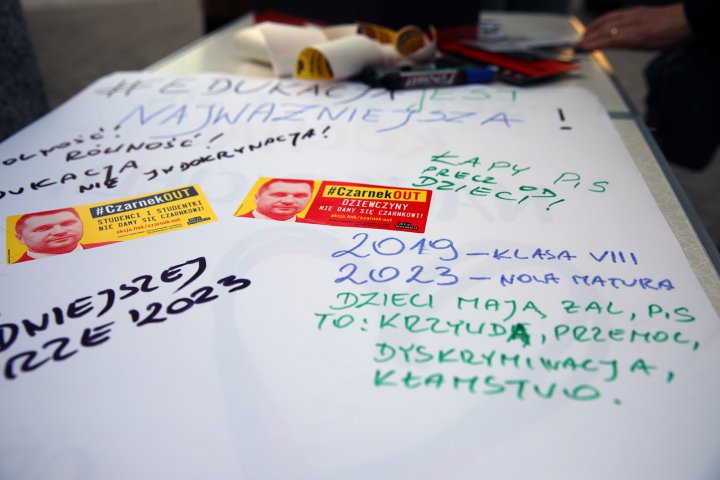 #EDUKACJA JEST
NAJWAŻNIEJSZA !
WOLNOŚĆ!
RÓWNOŚĆ!
EDUKACJA
NIE INDOKRYNACJA!
ŁAPY PiS
PRECZ OD
DZIECI!
#CzarnekOUT
STUDENCI I STUDENTKI
NIE DAMY SIĘ CZARNKOWI!
akcja.link/czarnek-out
#CzarnekOUT
DZIEWCZYNY
NIE DAMY SIĘ CZARNKOWI!
akcja.link/czarnek-out
2019 – KLASA VIII
2023 – NOWA MATURA
DZIECI MAJĄ ŻAL, PiS
TO: KRZYWDA, PRZEMOC,
DYSKRYMINACJA,
KŁAMSTWO.
2023